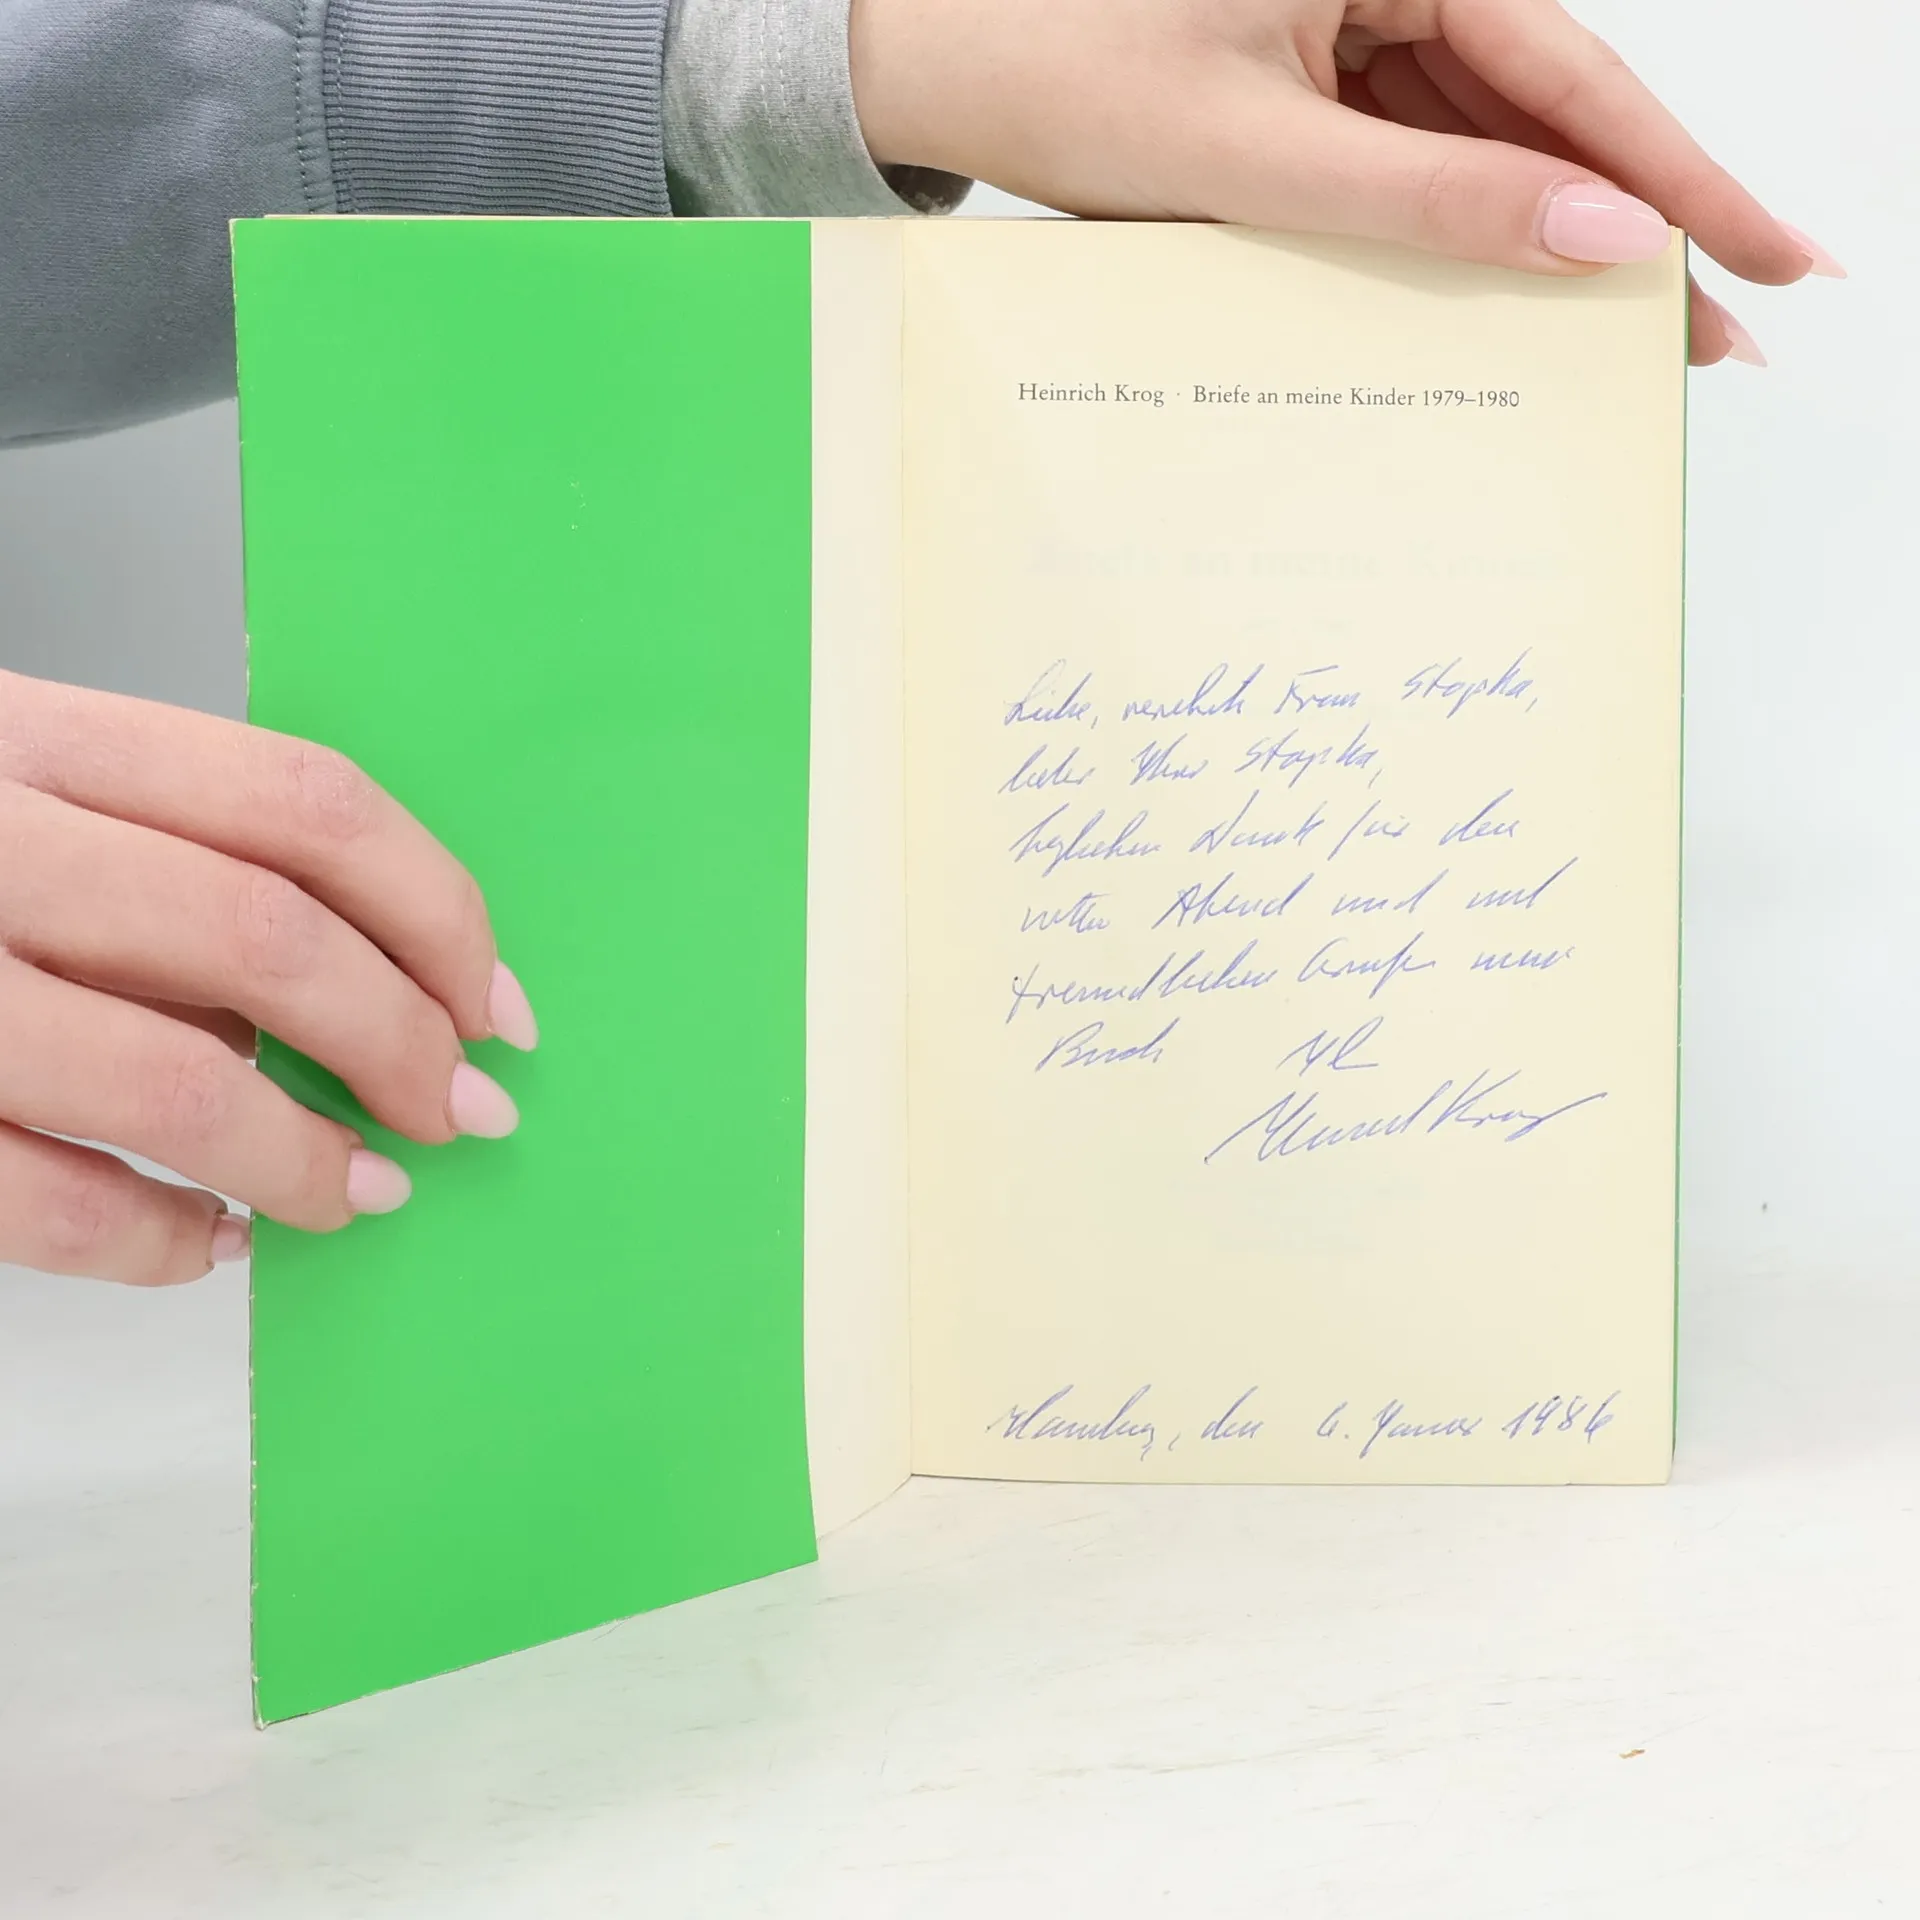 Heinrich Krog · Briefe an meine Kinder 1979–1980
Liebe, verehrte Frau Stopka,
lieber Herr Stopka,
herzlichen Dank für den
netten Abend und mit
freundlichen Grüßen mein
Buch Ihr
Heinrich Krog
Hamburg, den 6. Januar 1986